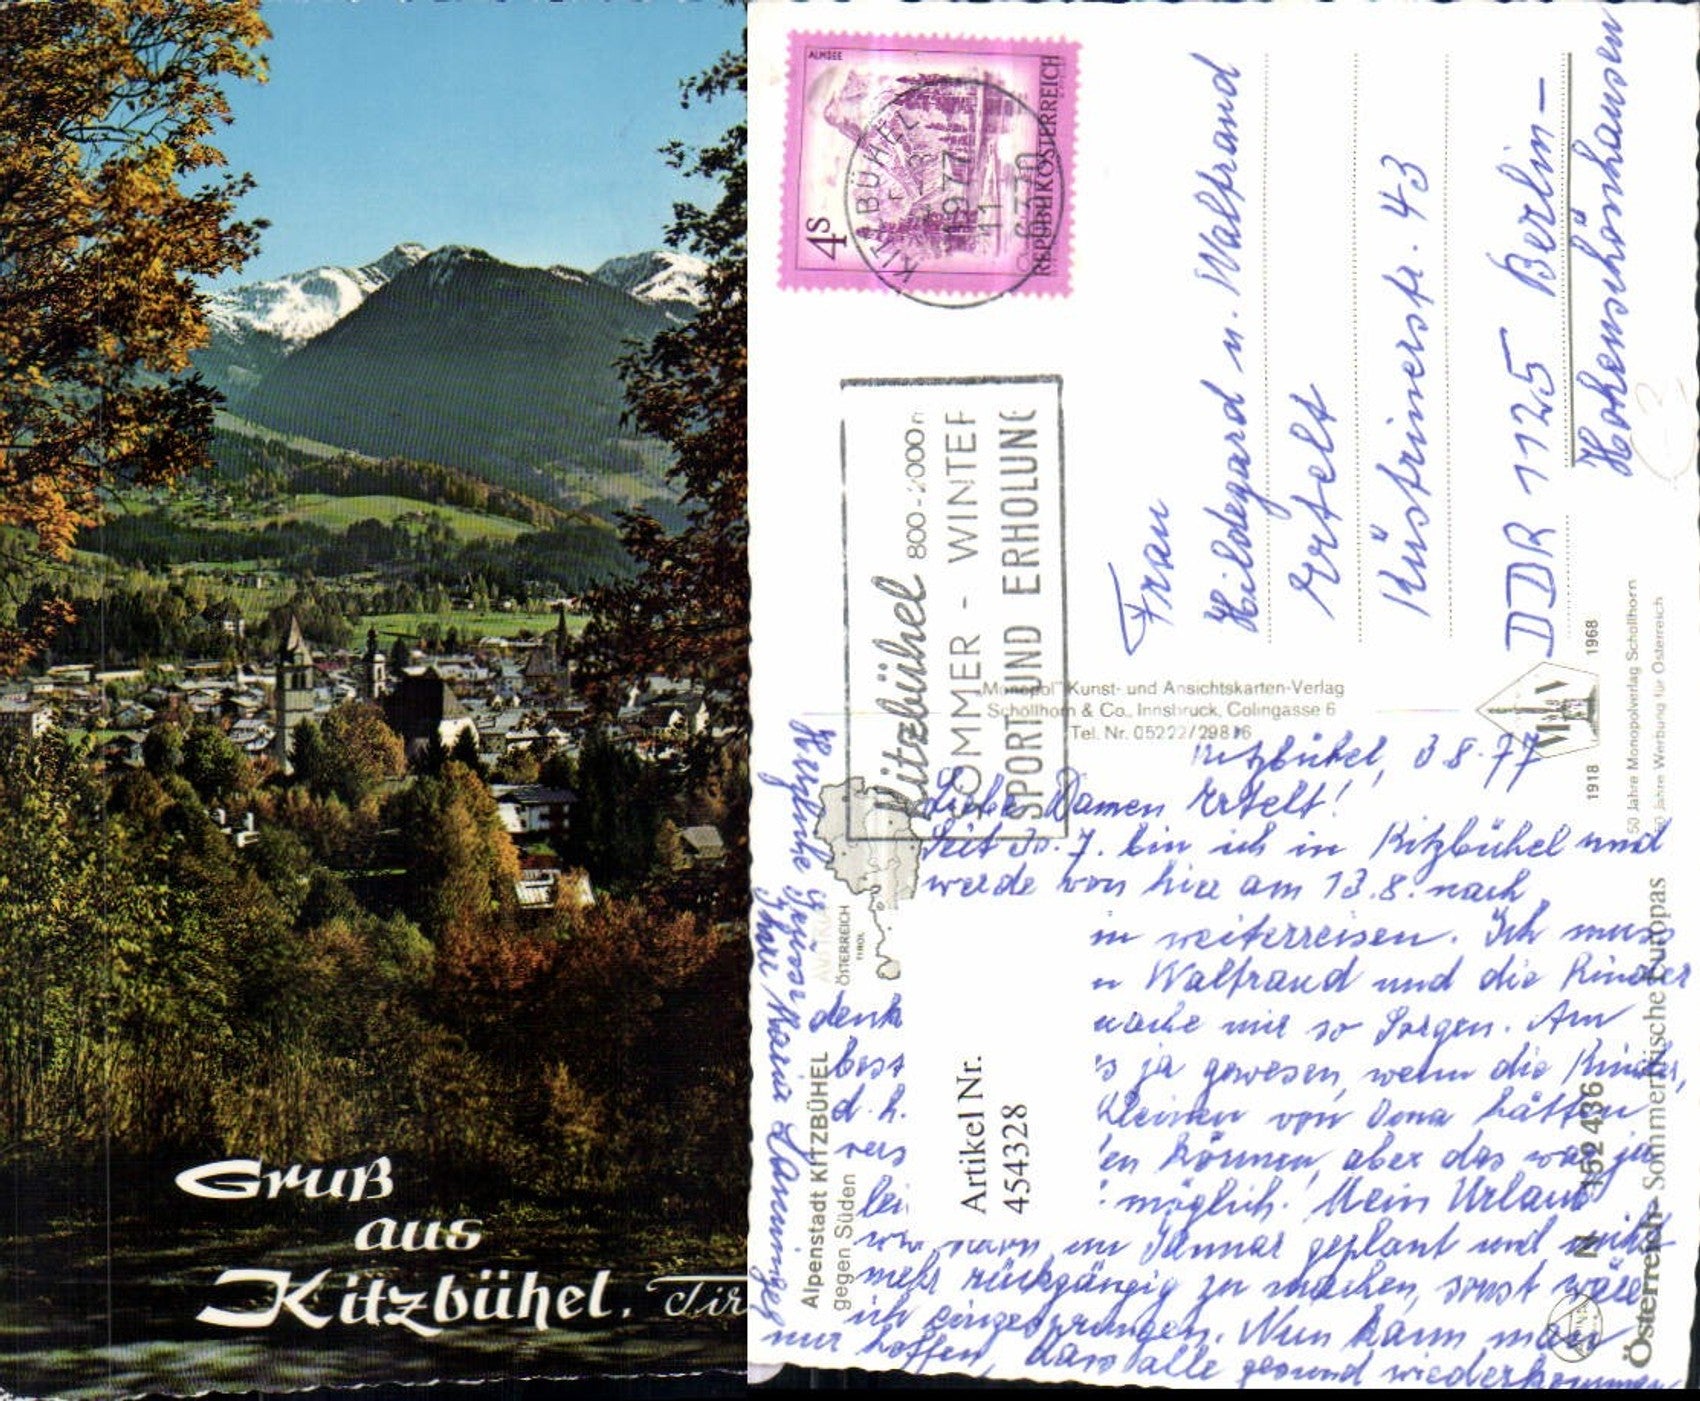 Gruß
aus
Kitzbühel. Tir
ALMSEE
4s
REPUBLIK ÖSTERREICH
KITZBÜHEL
1977
11
6370
Kitzbühel 800-2000m
SOMMER - WINTER
SPORT UND ERHOLUNG
Frau
Hildegard u. Waltraud
Ertelt
Küstrinerstr. 43
DDR 1125 Berlin-
Hohenschönhausen
„Monopol" Kunst- und Ansichtskarten-Verlag
Schöllhorn & Co., Innsbruck, Colingasse 6
Tel. Nr. 05222/29816
1918 1968
50 Jahre Monopolverlag Schöllhorn
50 Jahre Werbung für Österreich
Kitzbühel, 3 8.77
Liebe Damen Ertelt!
Seit 30. 7. bin ich in Kitzbühel und
werde von hier am 13.8. nach
in weiterreisen. Ich muss
denk n Waltraud und die Kinder
mache mir so Sorgen. Am
best s ja gewesen, wenn die Kinder,
d. h. Kleinen von Dona hätten
vers en können, aber das war ja
lei möglich. Mein Urlaub
war schon im Januar geplant und nicht
mehr rückgängig zu machen, sonst wäre
ich eingesprungen. Nun kann man
nur hoffen, dass alle gesund wiederkommen
Herzliche Grüsse
Ihre Maria
ÖSTERREICH
TIROL
Alpenstadt KITZBÜHEL
gegen Süden
Artikel Nr.
454328
N 152 436
Österreich - Sommerfrische Europas